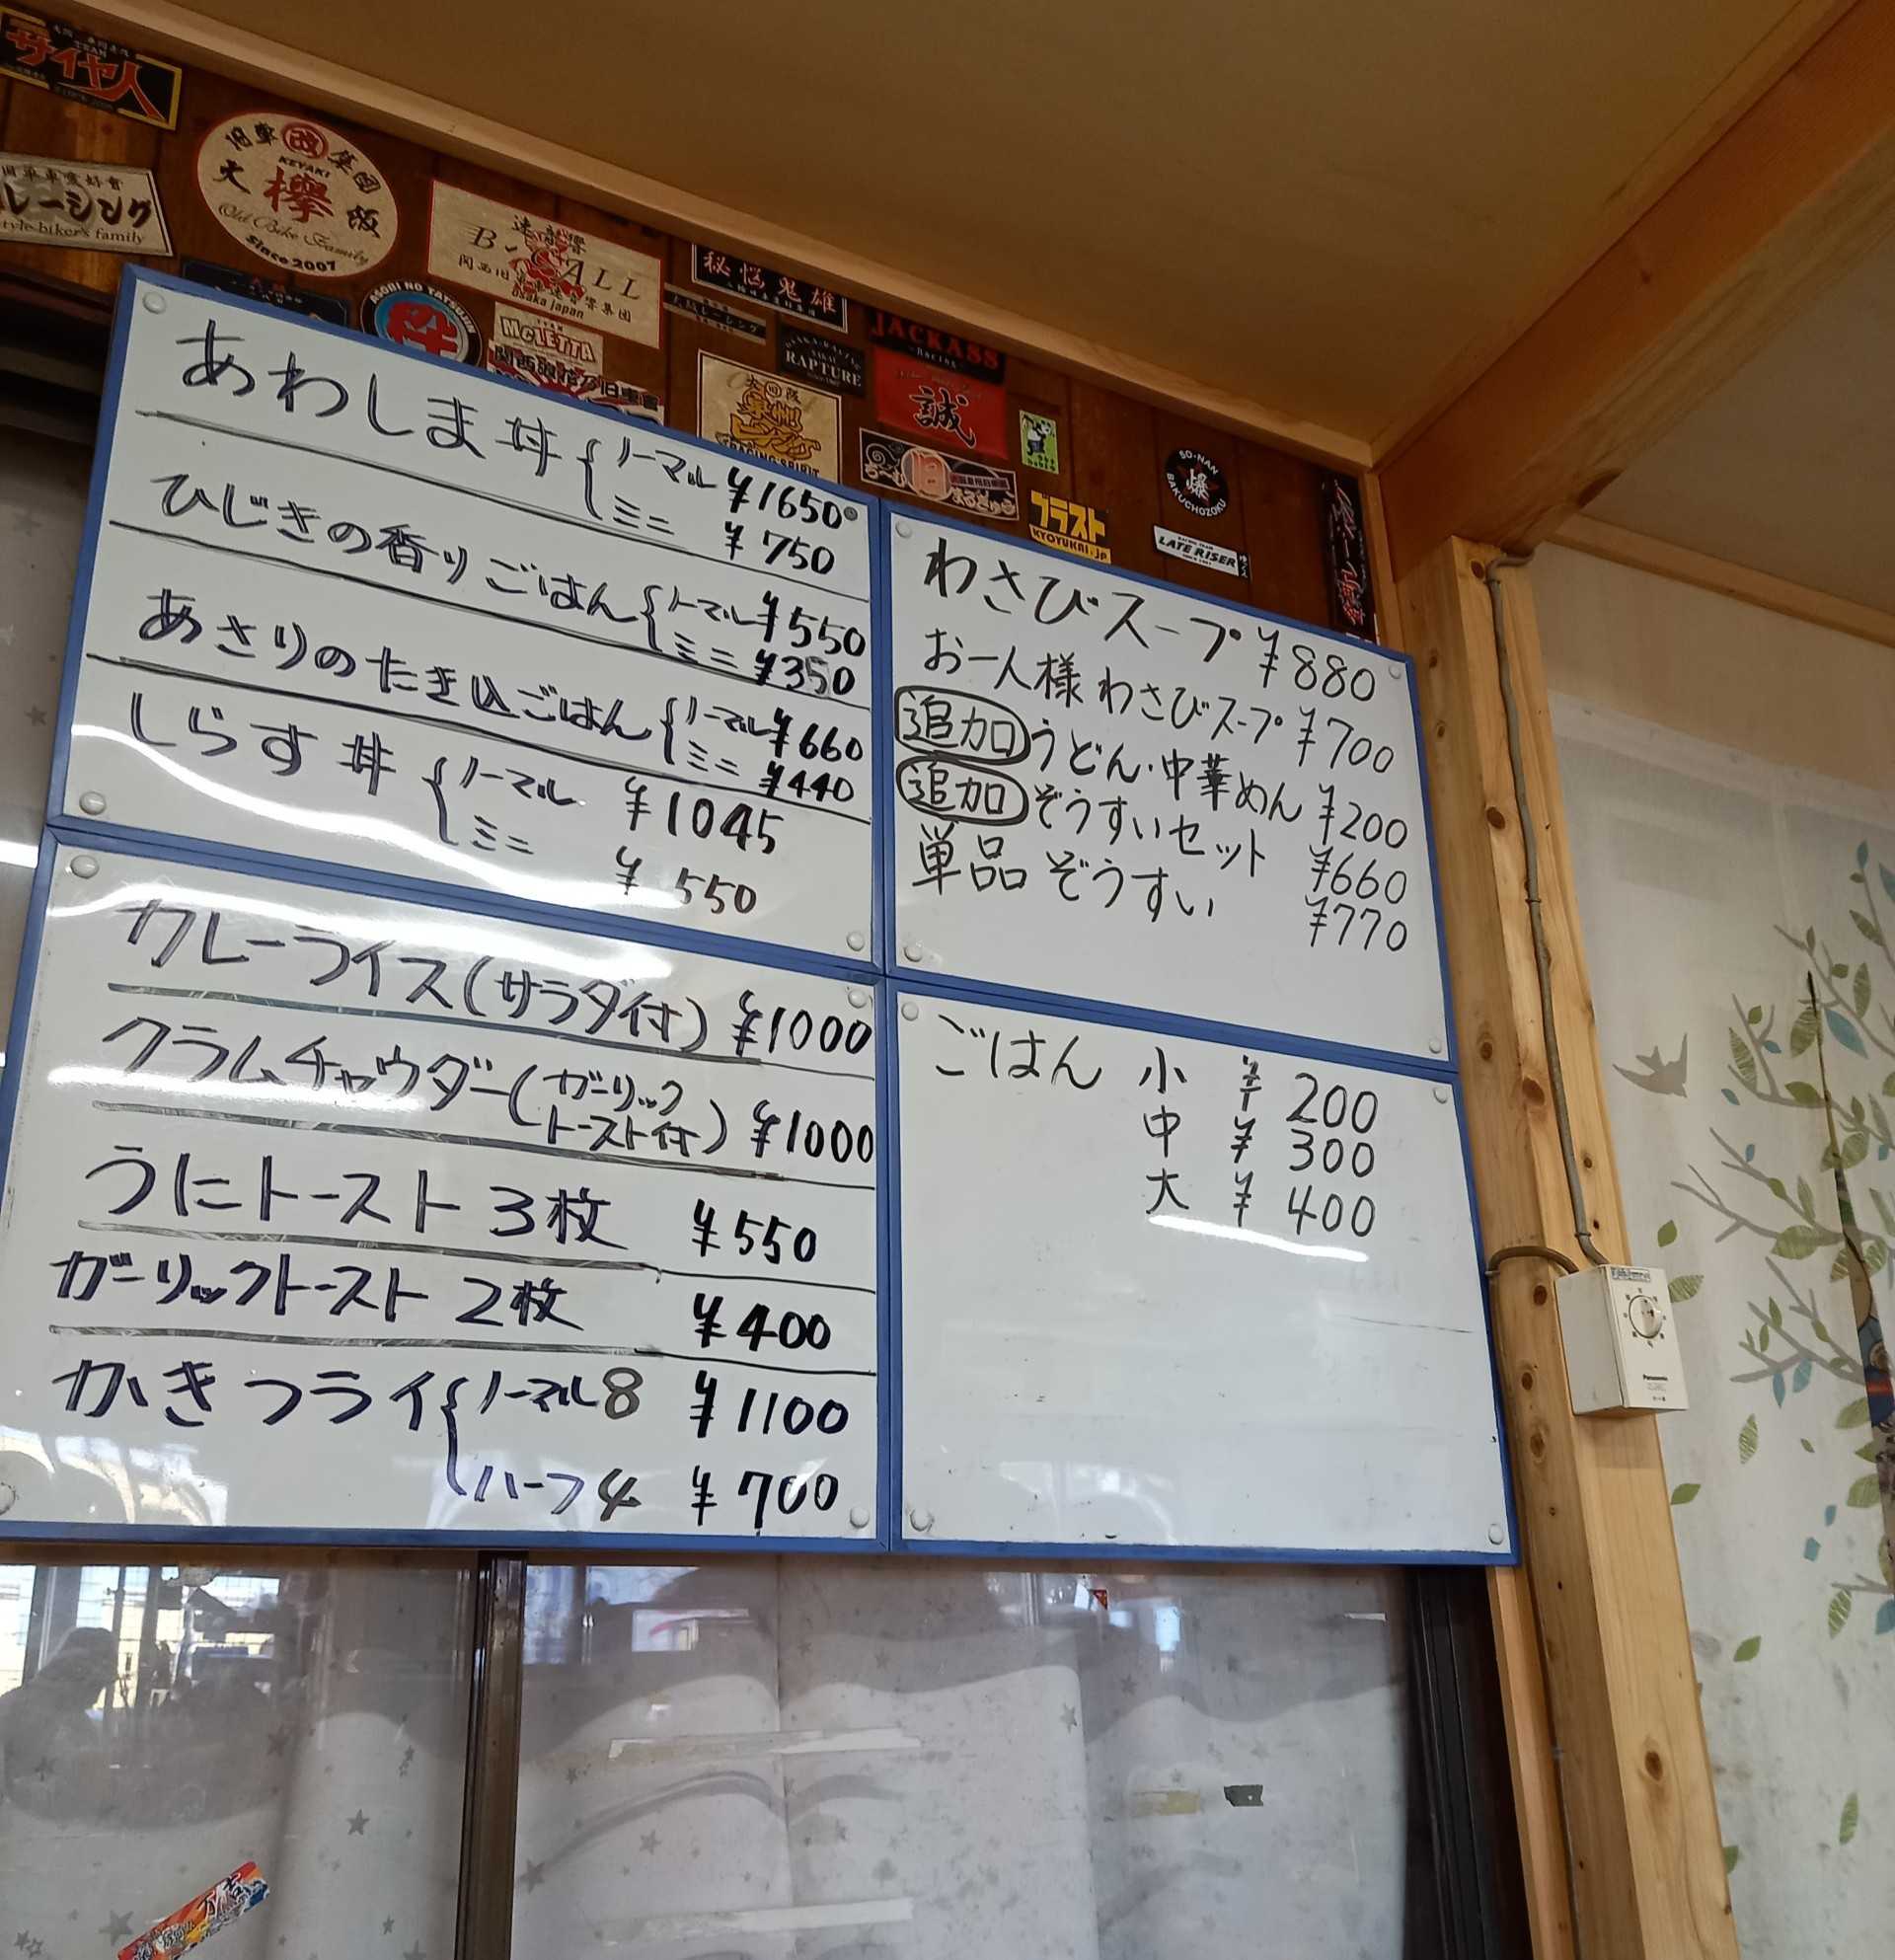 サイヤ人
TEAM
旧単車愛好會
レーシング
style biker's family
旧車改集団
KEYAKI
大欅阪
Old Bike Family
Since 2007
ASOBI NO TATSUJIN
B・CALL
osaka japan
TEAM
McLETTA
秘悩鬼雄
RAPTURE
JACKASS
Racing
誠
大旧阪
泉州
RACING SPIRIT
旧
まるきゅう
ブラスト
KYOYUKAI.jp
SO-NAN
爆
BAKUCHOZOKU
LATE RISER
あわしま丼 ノーマル ¥1650
ミニ ¥750
ひじきの香りごはん ノーマル ¥550
ミニ ¥350
あさりのたき込ごはん ノーマル ¥660
ミニ ¥440
しらす丼 ノーマル ¥1045
ミニ ¥550
カレーライス(サラダ付) ¥1000
クラムチャウダー(ガーリックトースト付) ¥1000
うにトースト 3枚 ¥550
ガーリックトースト 2枚 ¥400
かきフライ ノーマル8 ¥1100
ハーフ4 ¥700
わさびスープ ¥880
お一人様 わさびスープ ¥700
追加 うどん・中華めん ¥200
追加 ぞうすいセット ¥660
単品 ぞうすい ¥770
ごはん 小 ¥200
中 ¥300
大 ¥400
Panasonic